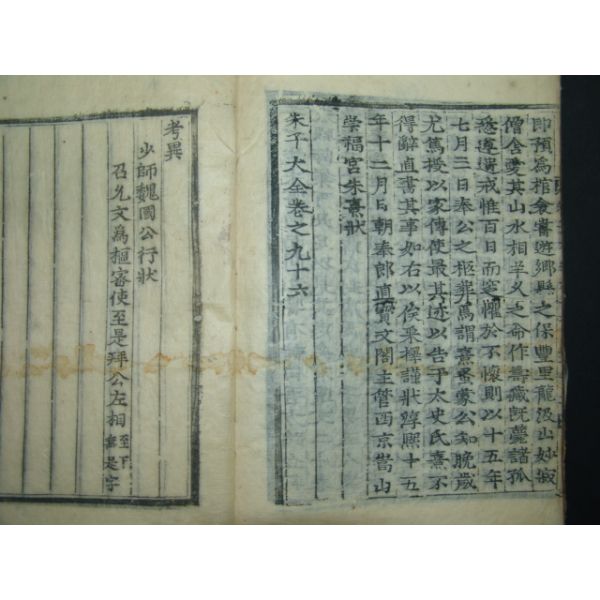 即預為棺衾嘗遊鄉縣之保豐里龍汲山妙寂
僧舍愛其山水相羊久之命作壽藏既薨諸孤
悉遵遺戒惟百日而窆懼於不懷則以十五年
七月三日奉公之柩葬焉謂熹蚤蒙公知晚歲
尤篤授以家傳使最其迹以告于太史氏熹不
得辭直書其事如右以俟采擇謹狀淳熙十五
年十二月日朝奉郎直寶文閣主管西京嵩山
崇福宮朱熹狀
朱子大全卷之九十六
考異
少師魏國公行狀
召允文為樞密使至是拜公左相至下無是字